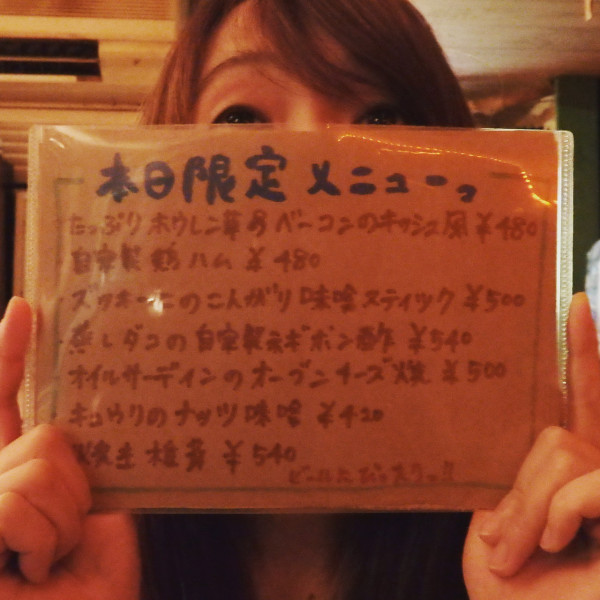 本日限定メニューっ
たっぷりホウレン草のベーコンのキッシュ風 ¥480
自家製鶏ハム ¥480
ズッキーニのこんがり味噌スティック ¥500
蒸しダコの自家製ネギポン酢 ¥540
オイルサーディンのオーブンチーズ焼 ¥500
キュウリのナッツ味噌 ¥420
焼生椎茸 ¥540
ビールにぴったりっ!!